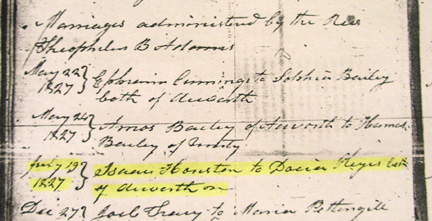 Marriages administered by the Rev
Theophilus B Adams
May 22 } Ephraim Cummings to Sophia Bailey
1827 } both of Acworth
May 24
1827 } Amos Bailey of Acworth to Hannah
Bailey of Unity
July 19 } Isaac Houston to Docia Keyes both
1827 } of Acworth on
Dec 27 } Joel Tracy to Maria Pettengill